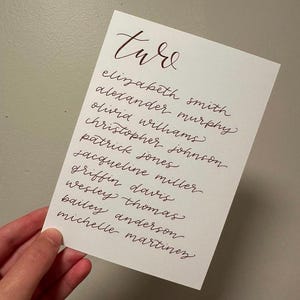 two
elizabeth smith
alexander murphy
olivia williams
christopher johnson
patrick jones
jacqueline miller
griffin davis
wesley thomas
bailey anderson
michelle martinez